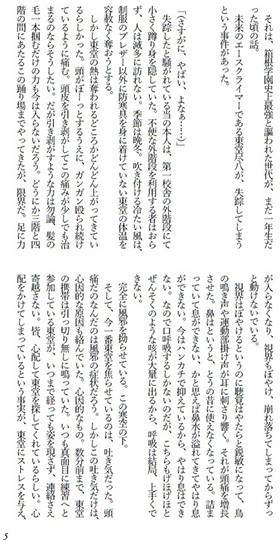 それは、箱根学園史上最強と謳われた世代が、まだ一年生だ
った頃の話。
未来のエースクライマーである東堂尽八が、失踪してしまう
という事件があった。
「(さすがに、やばい、よなぁ……)」
失踪したと騒がれている当の本人は、第一校舎の外階段にて
小さく蹲り身を隠していた。不便な外階段を利用する者はまら
ず、人は滅多に訪れない。季節は晩冬、吹き付ける冷たい風は、
制服のブレザー以外に防寒具を身に着けていない東堂の体温を
容赦なく奪おうとする。
しかし東堂の熱は奪われるどころかどんどん上がってきてい
るらしかった。頭がぼーっとするうえに、ガンガン殴られ続け
ているように痛む。頭皮を引き剥がしてこの痛みが少しでも治
まるのならそうしたい。だが引き剥がすような力は勿論、髪の
毛一本掴むだけの力も今は入らないだろう。どうにか三階と四
階の間にあるこの踊り場までやってきたが、限界だ。足に力
が入らなくなり、視界もぼやけ、崩れ落ちてしまってからずっ
と動けないでいる。
視界はぼやけるというのに聴覚はやたらと鋭敏になって、鳥
の鳴き声や運動部掛け声が耳にキンキン響く。それが頭痛を増長
させた。鼻はというと、とうの昔に使えなくなっている。詰ま
っていて息ができない、かと思えば鼻水が溢れてきてやはり息
ができない。今はハンカチで抑えているから、やはり息はでき
ない。なので口呼吸するしかないのだが、こちらもげほげほと
ぜんそくのような咳が大量に出るから、呼吸は結局、上手くで
きない。
完全に風邪を拗らせている。この寒空の下。
そして、今一番東堂を焦らせているのは、吐き気だった。頭
痛だのなんだのは風邪の症状だろう。しかしこの吐き気だけは、
心因的な原因も絡んでいた。心因的なもの。数分前まで、東堂
の携帯は引っ切り無しに鳴っていた。いつも真面目に練習へと
参加している東堂が、いつまで経っても姿を現さず、連絡さえ
寄越さない。皆、心配して東堂を探してくれているらしい。心
配をかけてしまっているという事実が、東堂にストレスを与え、
5